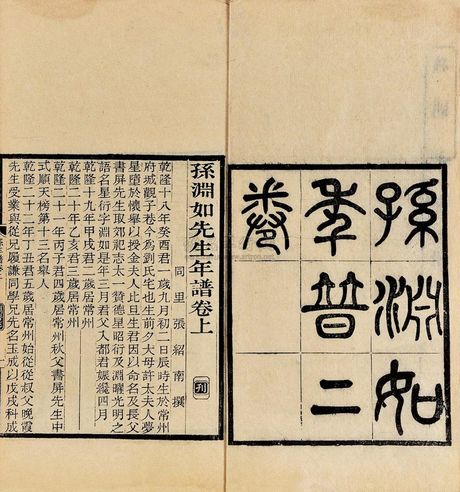 孫淵如
秊普二
卷
孫淵如先生年譜卷上
同里張紹南撰
刊
乾隆十八年癸酉君一歲九月初二日辰時生於常州
府城觀子巷今為劉氏宅也生前夕大母許太夫人夢
星墮於懷舉以授金夫人比旦生君因以命名及長父
書屏先生取郊祀志太一贊德星昭衍及淵曜光明之
語名星衍字淵如是年三月君父入都君娠纔四月
乾隆十九年甲戌君二歲居常州
乾隆二十年乙亥君三歲居常州
乾隆二十一年丙子君四歲居常州秋父書屏先生中
式順天榜第十三名舉人
乾隆二十二年丁丑君五歲居常州始從從叔父晚霞
先生受業與從兄履謙同學兄先名玉成以戊戌科成